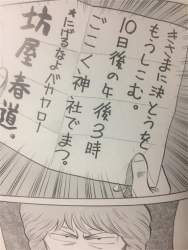 きさまに決とうを
もうしこむ。
10日後の午后3時
ごこく神社でまつ。
*にげるなよバカヤロー
坊屋春道.